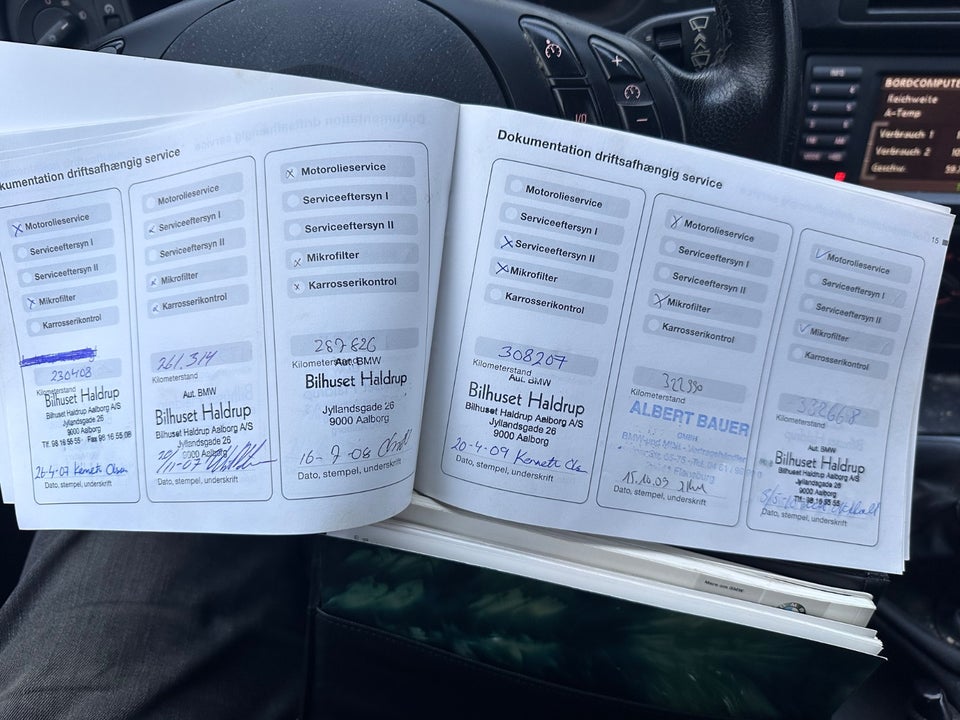 kumentation driftsafhængig service
Motorolieservice
Serviceeftersyn I
Serviceeftersyn II
Mikrofilter
Karrosserikontrol
230408
Kilometerstand
Bilhuset Haldrup
Bilhuset Haldrup Aalborg A/S
Jyllandsgade 26
9000 Aalborg
26-4-07 Kenneth Olsen
Dato, stempel, underskrift
Motorolieservice
Serviceeftersyn I
Serviceeftersyn II
Mikrofilter
Karrosserikontrol
261.314
Kilometerstand
Aut. BMW
Bilhuset Haldrup
Bilhuset Haldrup Aalborg A/S
Jyllandsgade 26
9000 Aalborg
Dato, stempel, underskrift
Motorolieservice
Serviceeftersyn I
Serviceeftersyn II
Mikrofilter
Karrosserikontrol
287826
Kilometerstand
Aut. BMW
Bilhuset Haldrup
Jyllandsgade 26
9000 Aalborg
16-7-08
Dato, stempel, underskrift
Dokumentation driftsafhængig service
Motorolieservice
Serviceeftersyn I
Serviceeftersyn II
Mikrofilter
Karrosserikontrol
308207
Kilometerstand
Aut. BMW
Bilhuset Haldrup
Bilhuset Haldrup Aalborg A/S
Jyllandsgade 26
9000 Aalborg
20-4-09 Kenneth Olsen
Dato, stempel, underskrift
Motorolieservice
Serviceeftersyn I
Serviceeftersyn II
Mikrofilter
Karrosserikontrol
322990
Kilometerstand
ALBERT BAUER
GMBH
Dato, stempel, underskrift
Motorolieservice
Serviceeftersyn I
Serviceeftersyn II
Mikrofilter
Karrosserikontrol
Kilometerstand
Aut. BMW
Bilhuset Haldrup
Bilhuset Haldrup Aalborg A/S
Jyllandsgade 26
9000 Aalborg
Dato, stempel, underskrift
15
BORDCOMPUTE
Reichweite
A-Temp
Verbrauch 1
Verbrauch 2
Geschw.